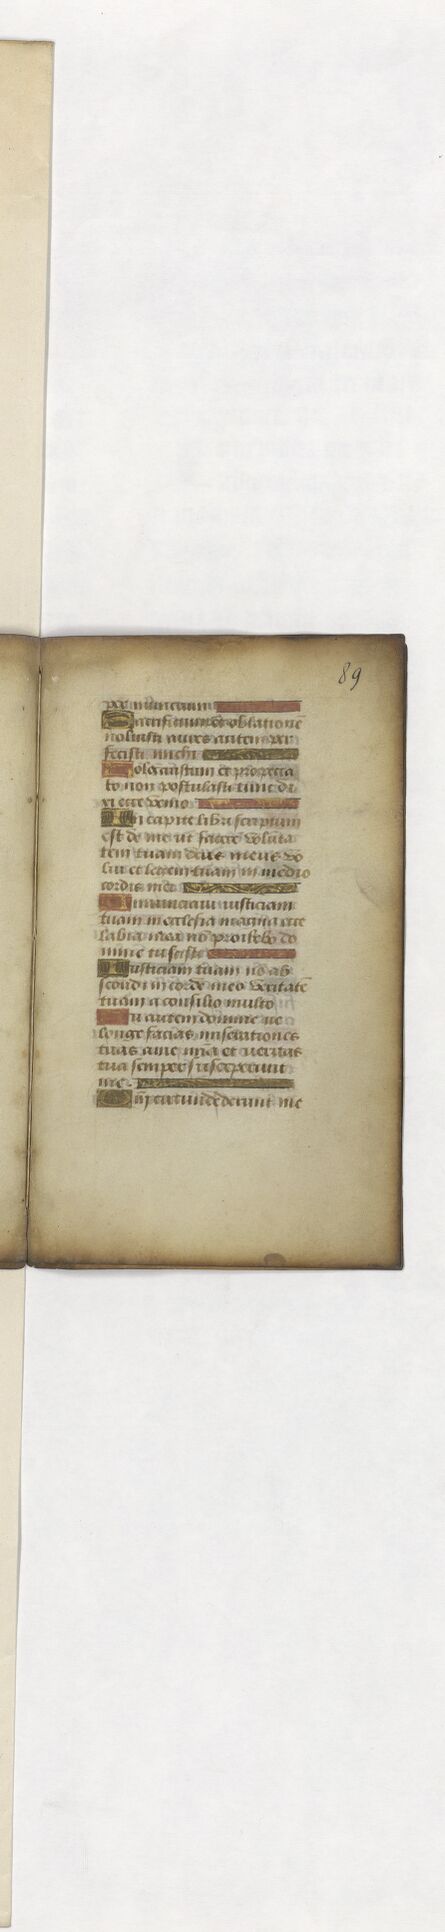 89
per numerum
Sacrificium et oblationē
noluisti aures autem per
fecisti michi
Holocaustum et pro pecca
to non postulasti tunc di
xi ecce venio
In capite libri scriptum
est de me ut facere volūta
tem tuam deus meus vo
lui et legem tuam in medio
cordis mei
Annunciavi iusticiam
tuam in ecclesia magna ecce
labia mea nō prohibebo do
mine tu scisti
Iusticiam tuam nō ab
scondi in corde meo veritatē
tuam a consilio multo
Tu autem domine ne
longe facias miserationes
tuas a me mīa et veritas
tua semper susceperunt
me
circundederunt me